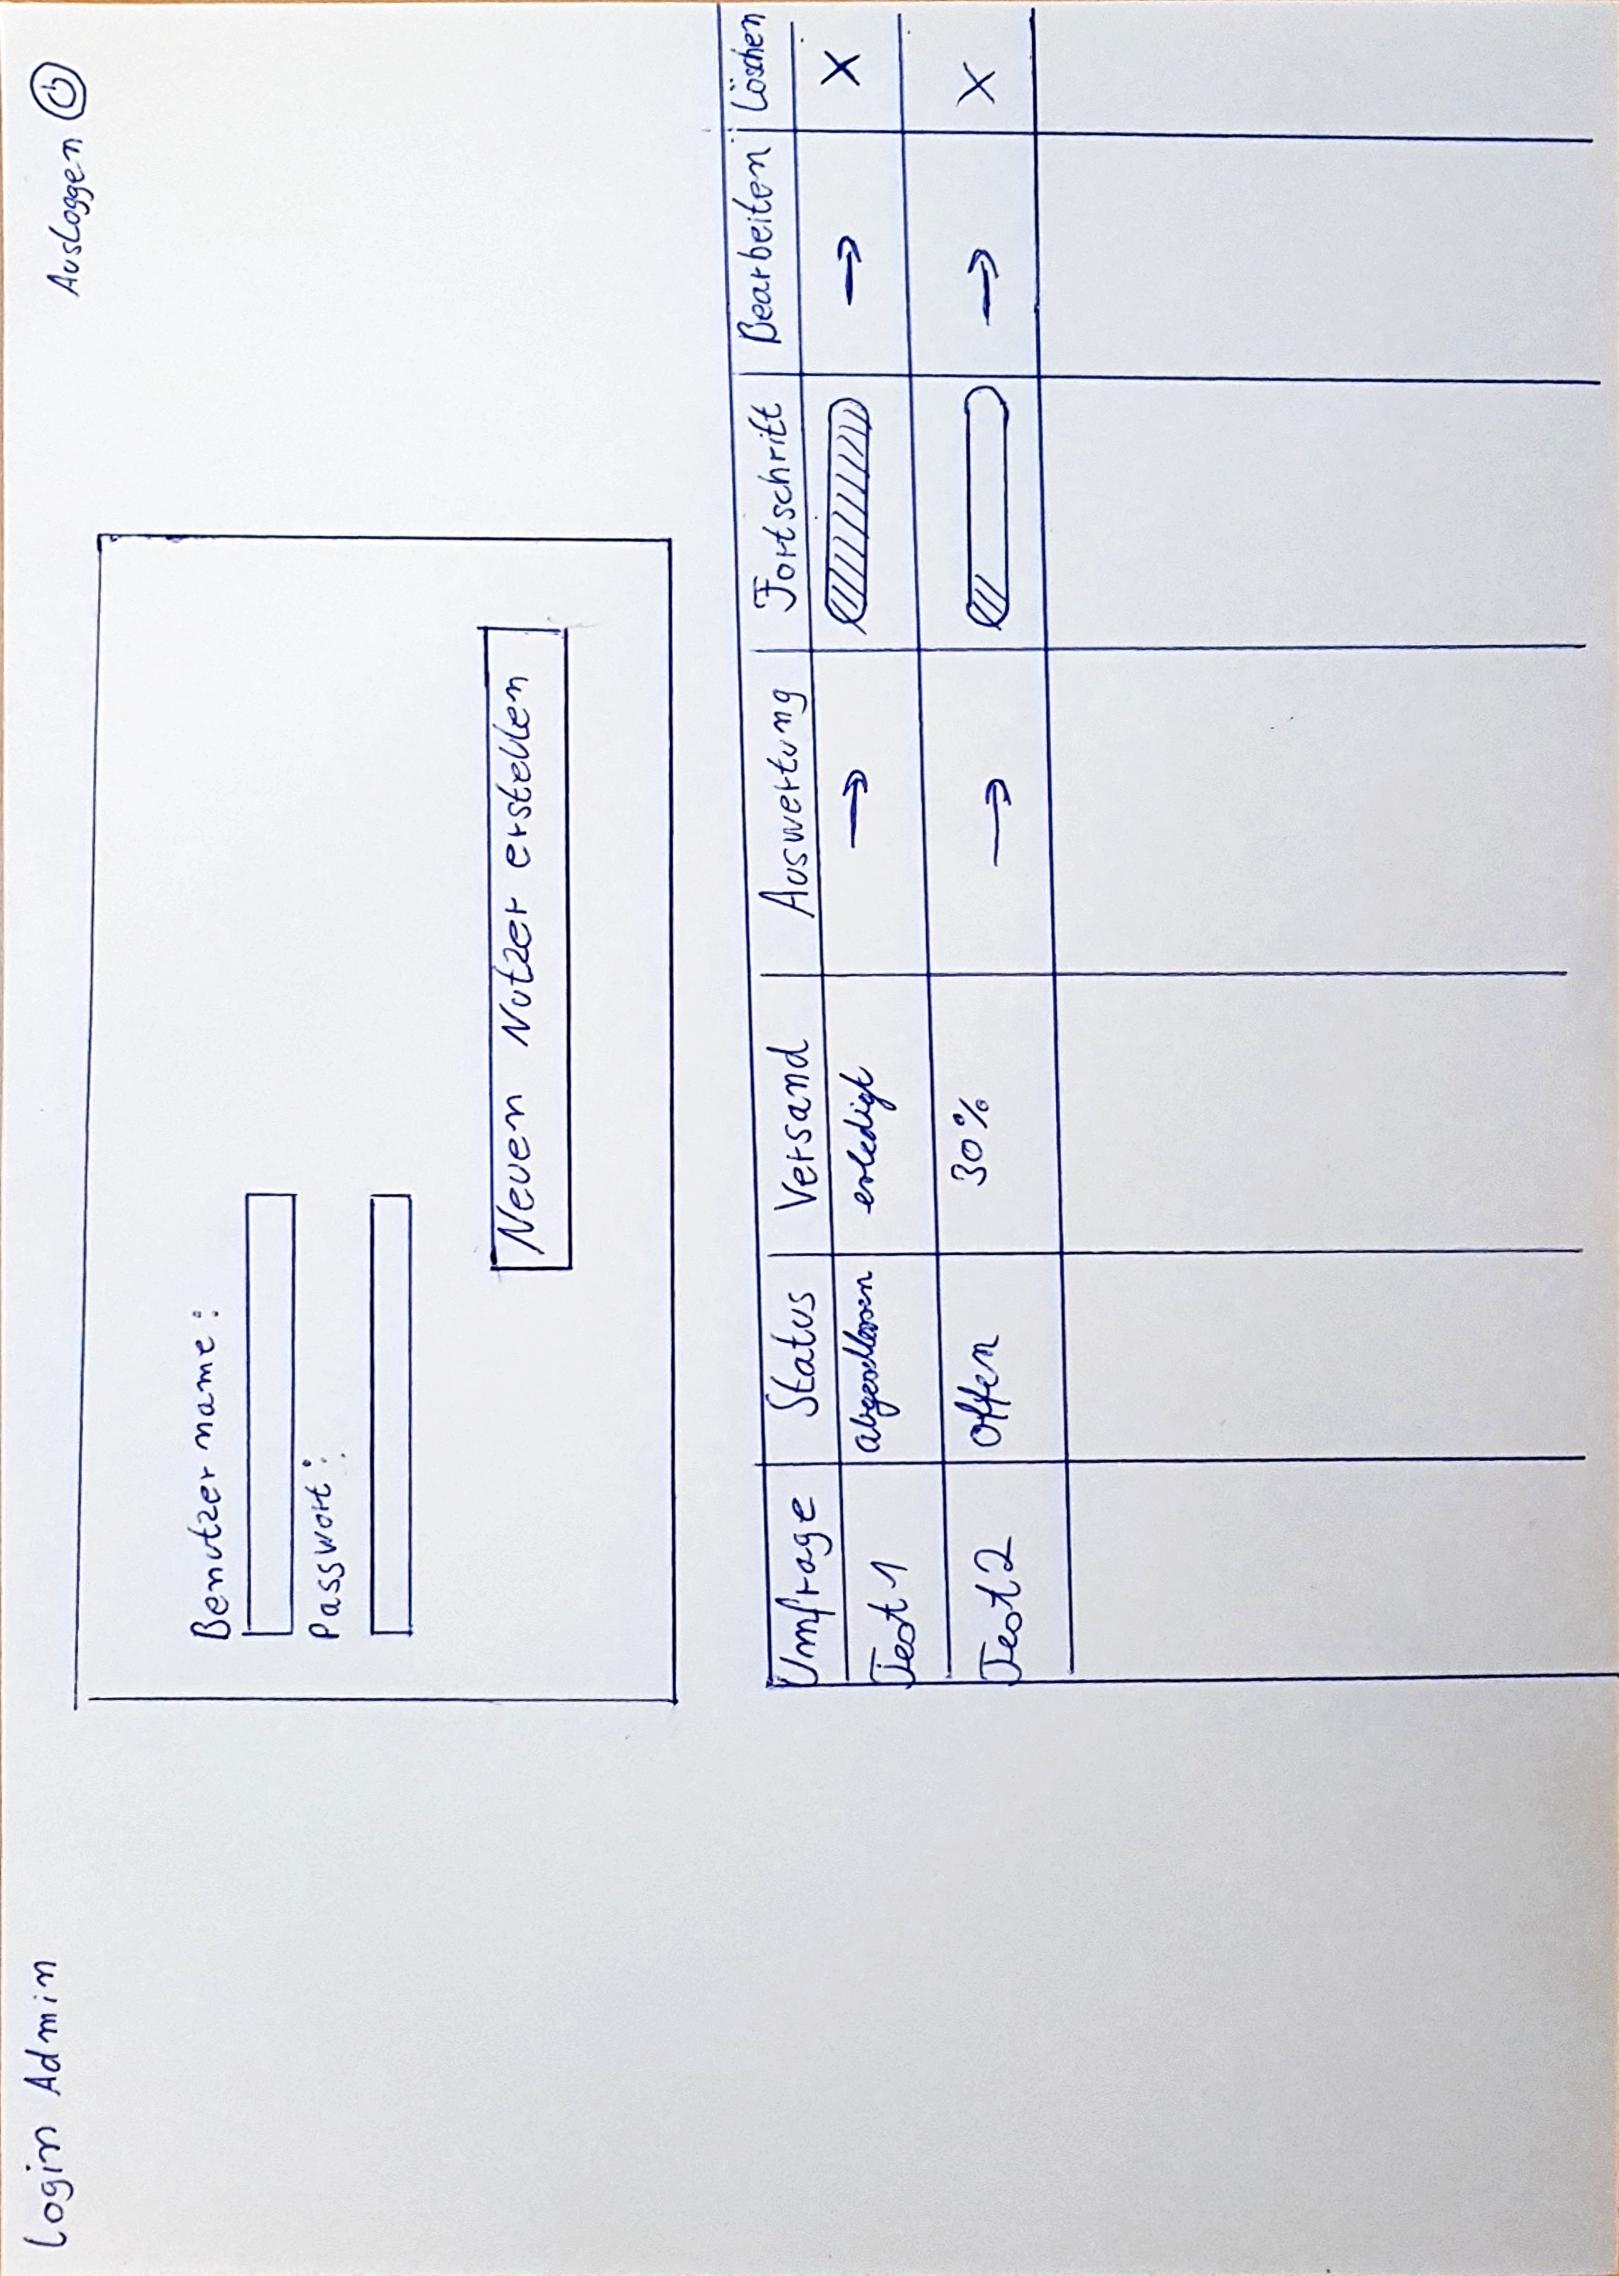 Login Admin
Ausloggen
Benutzername:
Passwort:
Neuen Nutzer erstellen
Umfrage Status Versand Auswertung Fortschritt Bearbeiten Löschen
Test 1 abgeschlossen erledigt → → X
Test 2 offen 30% → → X